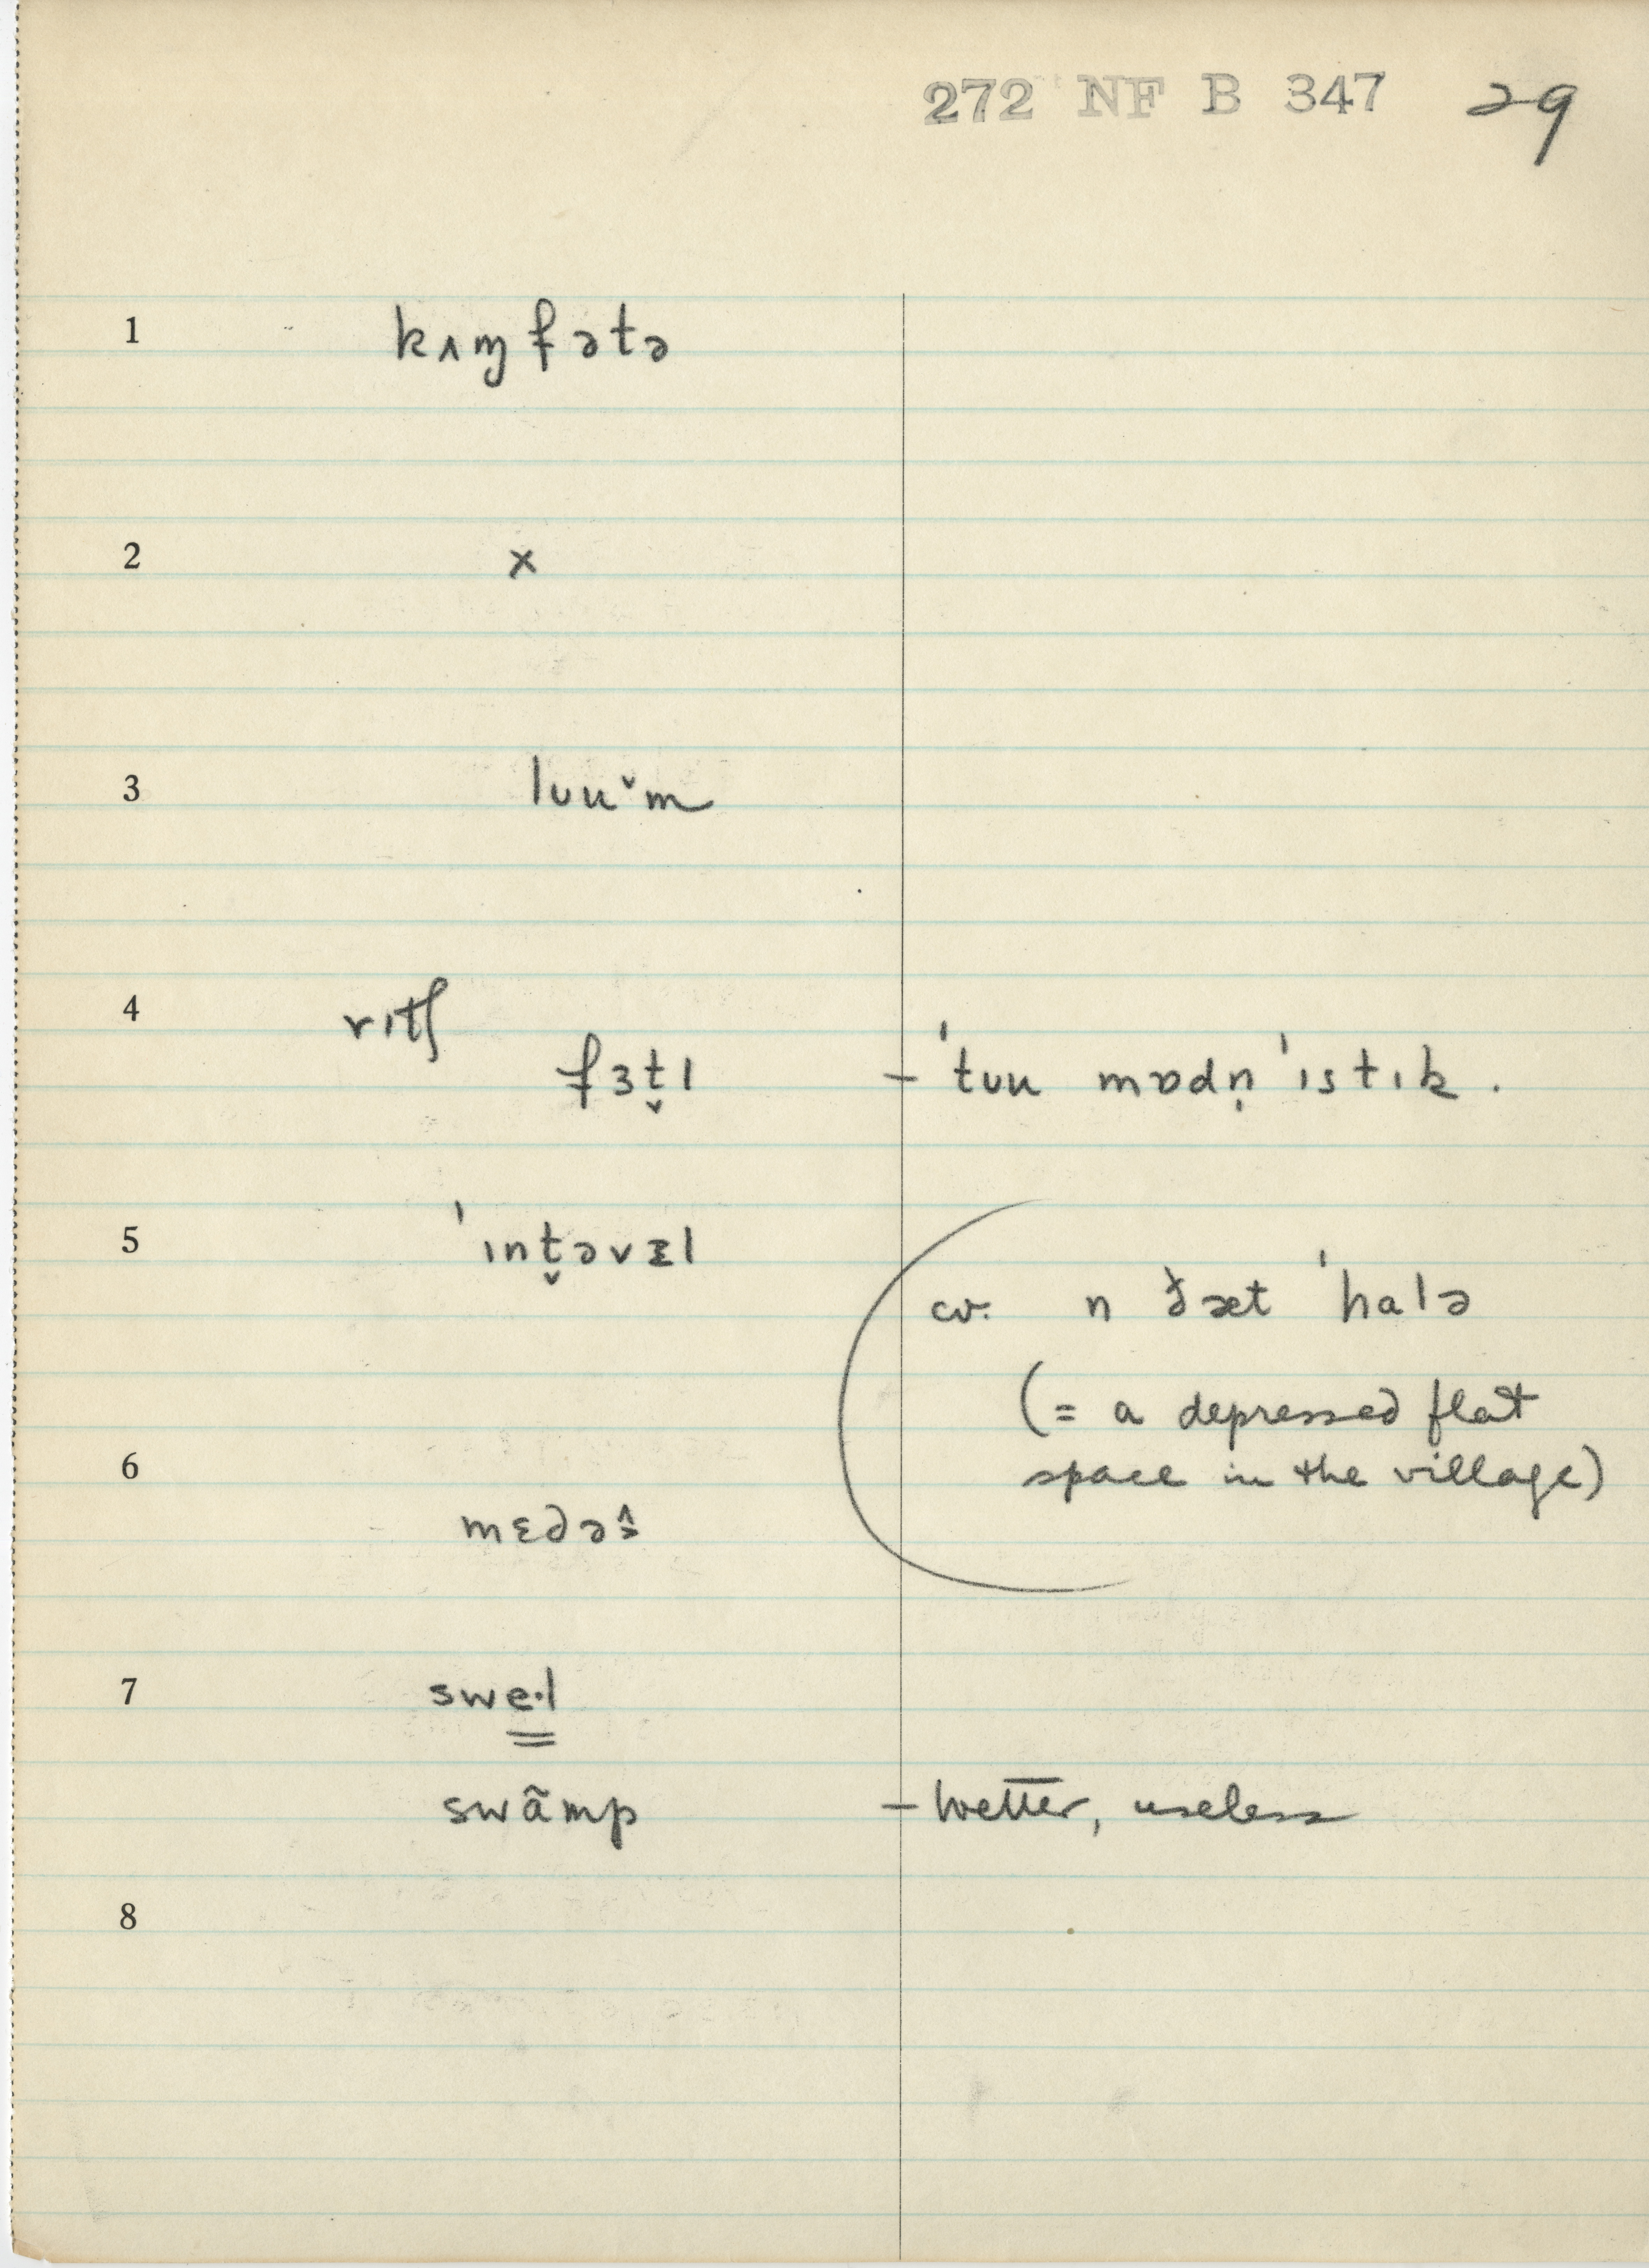 272 NF B 347 29
1 kʌɱfətə
2 x
3 lʊuˇm
4 rɪtʃ
fɜt̬l – ˈtʊu mɒdn̩ˈɪstɪk.
5 ˈɪnt̬əvɛl
cv. n ðæt ˈhalə
(= a depressed flat
6 space in the village)
mɛdəs̭
7 swe·l
swãmp – wetter, useless
8